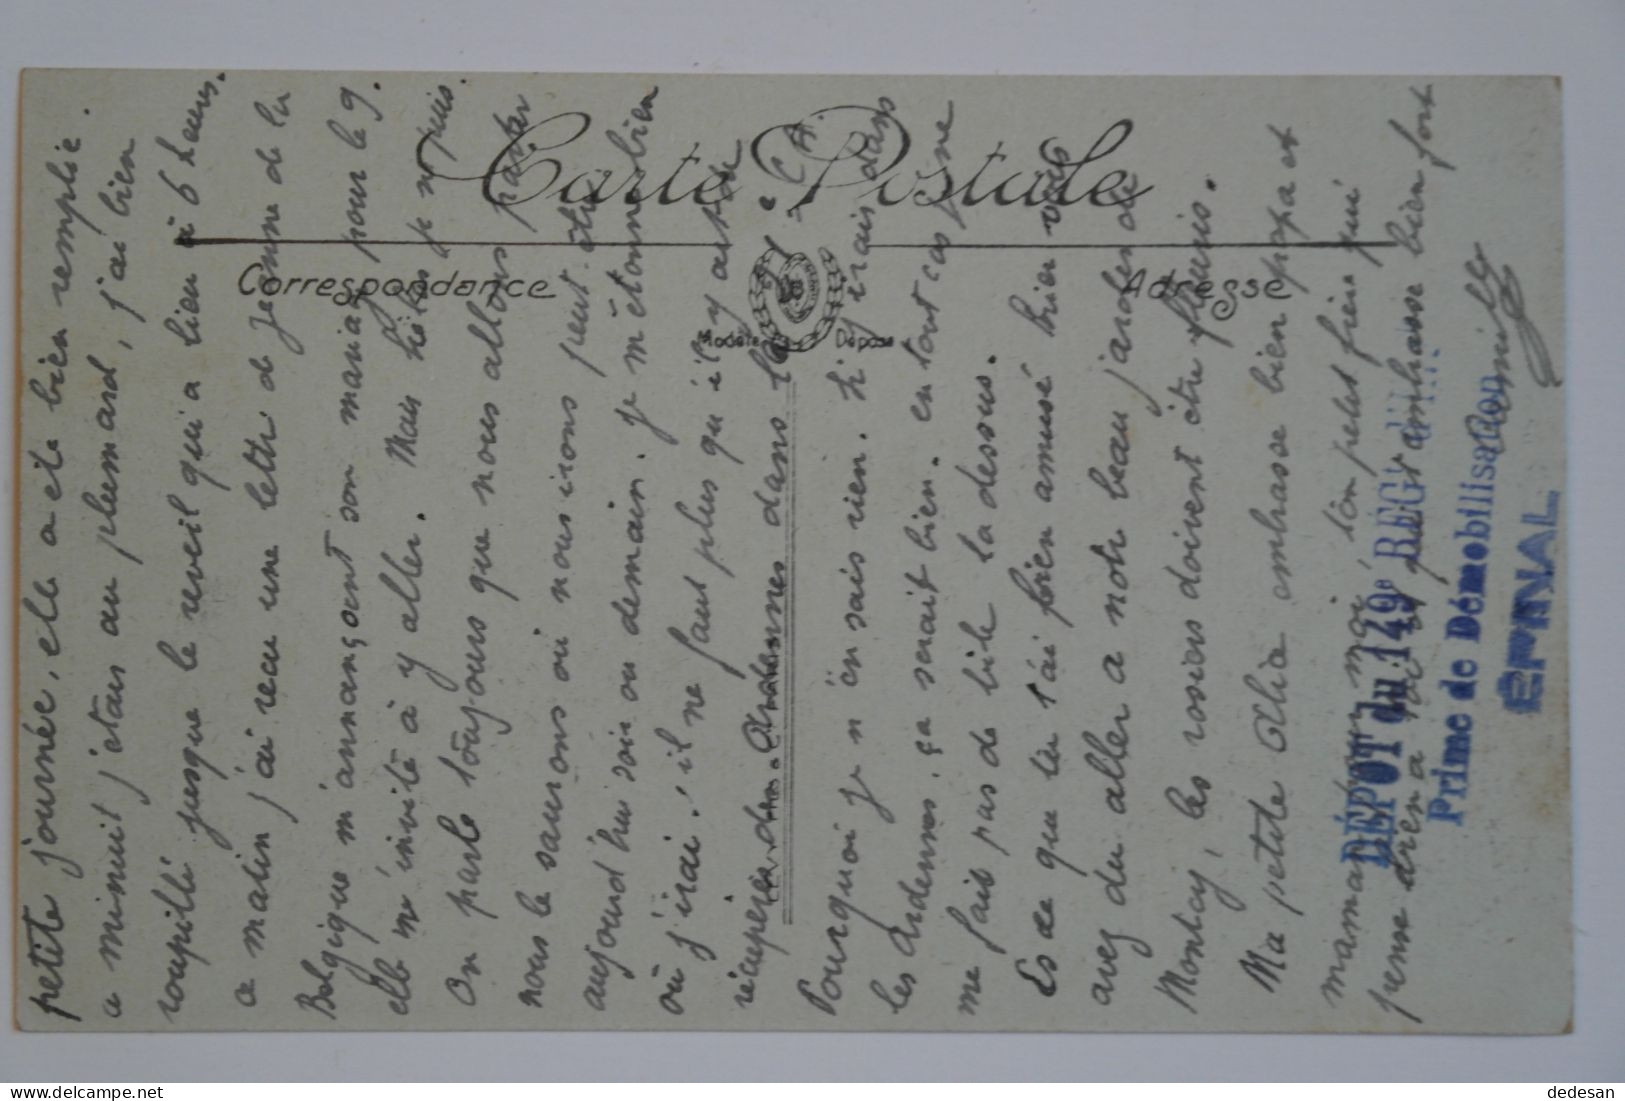 Carte Postale
Correspondance
Adresse
Modèle
Déposé
petite journée, elle a été bien remplie.
a minuit j'etais au plumard, j'ai bien
roupillé jusque le reveil qui a lieu à 6 heures.
ce matin j'ai recu une lettre de Jeanne de la
Belgique m'annançant son mariage pour le 9.
elle m'invite à y aller. Mais hélas je n'puis.
On parle toujours que nous allons partir
nous le saurons où nous irons peut être
aujourd'hui soir ou demain. je m'étonne bien
où j'irai! il ne faut plus qu'il y ait de
récuperés des Ardennes dans la
Pourquoi je n'en sais rien. Si j'irais dans
les Ardennes. ça serait bien. en tout cas je ne
me fais pas de bile la dessus.
Es ce que tu t'ai bien amusé hier vous
avez du aller a notre beau jardin de
Montcy, les rosiers doivent être fleuris.
Ma petite Alia embrasse bien papa et
maman pour moi, ton petit frère qui
pense bien a toi et qui t'embrasse bien fort
Camille
DÉPOT du 149e REGt d'Inf.
Prime de Démobilisation
ÉPINAL
dedesan